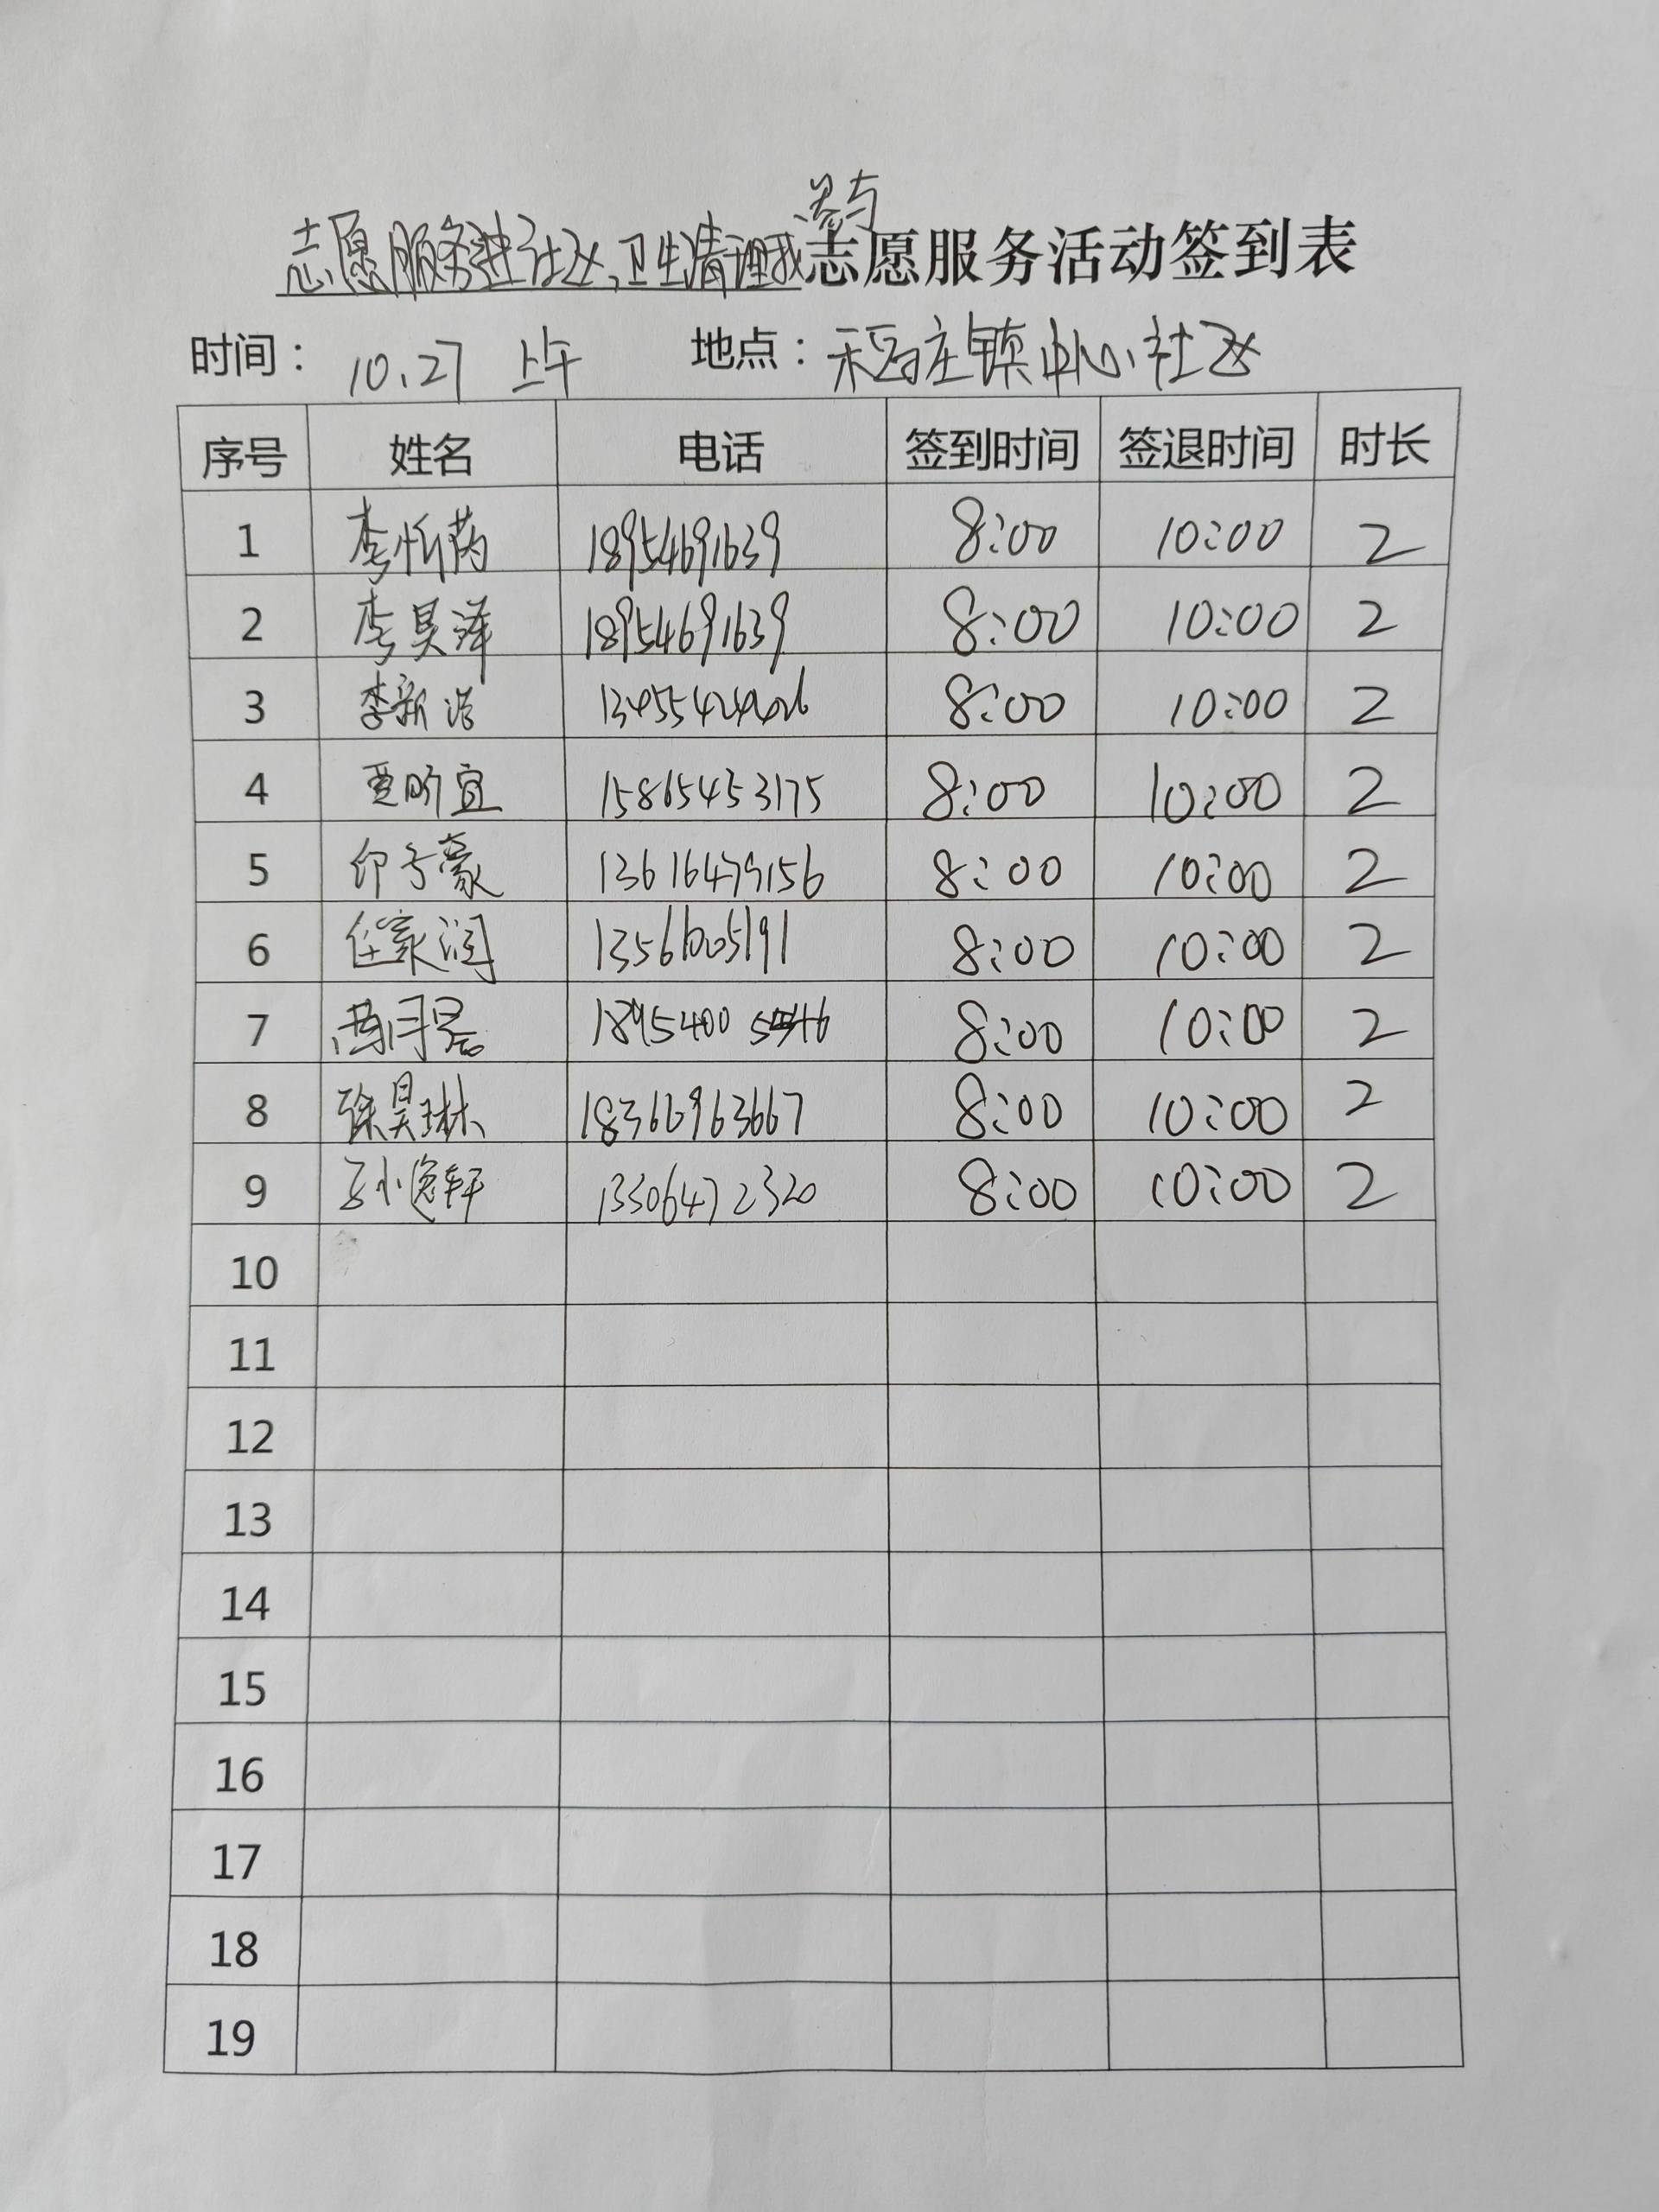 志愿服务进社区,卫生清理我参与志愿服务活动签到表
时间: 10.27 上午 地点: 稻庄镇中心社区
序号 姓名 电话 签到时间 签退时间 时长
1 李忻芮 18954691639 8:00 10:00 2
2 李昊泽 18954691639 8:00 10:00 2
3 李新浩 8:00 10:00 2
4 贾昕宜 15865453175 8:00 10:00 2
5 印子豪 13616479156 8:00 10:00 2
6 任家润 13561005191 8:00 10:00 2
7 8:00 10:00 2
8 徐昊琳 18366963667 8:00 10:00 2
9 孙逸轩 13306472320 8:00 10:00 2
10
11
12
13
14
15
16
17
18
19